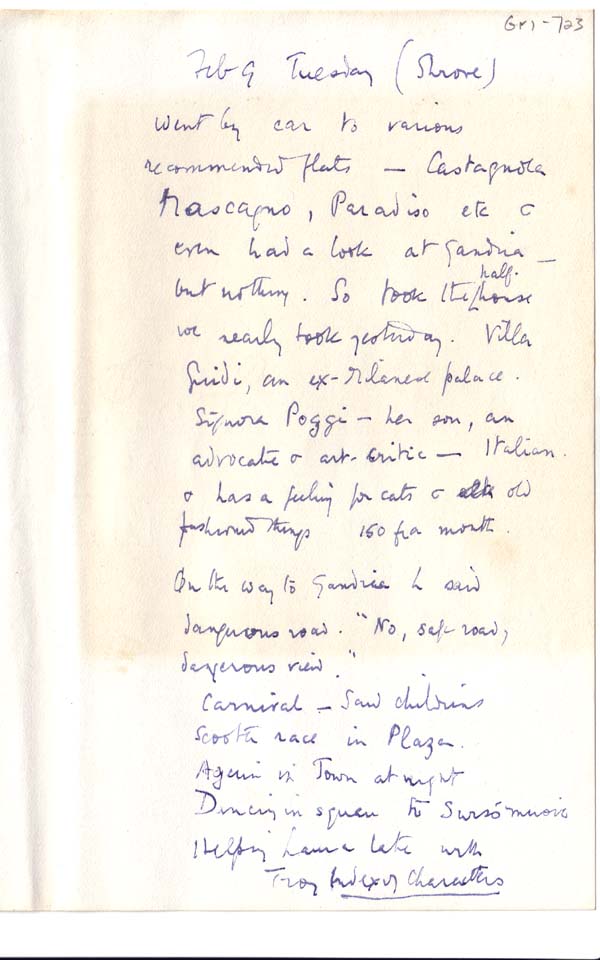 Gr1-723
Feb 9 Tuesday (Shrove)
Went by car to various
recommended flats — Castagnola
Massagno, Paradiso etc &
even had a look at Gandria —
but nothing. So took the half-house
we nearly took yesterday. Villa
Guidi, an ex-Milanese palace.
Signora Poggi — her son, an
advocate & art-critic — Italian.
& has a feeling for cats & old
fashioned things 150 fr a month.
On the way to Gandria L said
dangerous road. "No, safe road,
dangerous view."
Carnival — Saw childrens
Scooter race in Plaza.
Again in Town at night
Dancing in square to music
Helping Laura late with
Troy Index of Characters